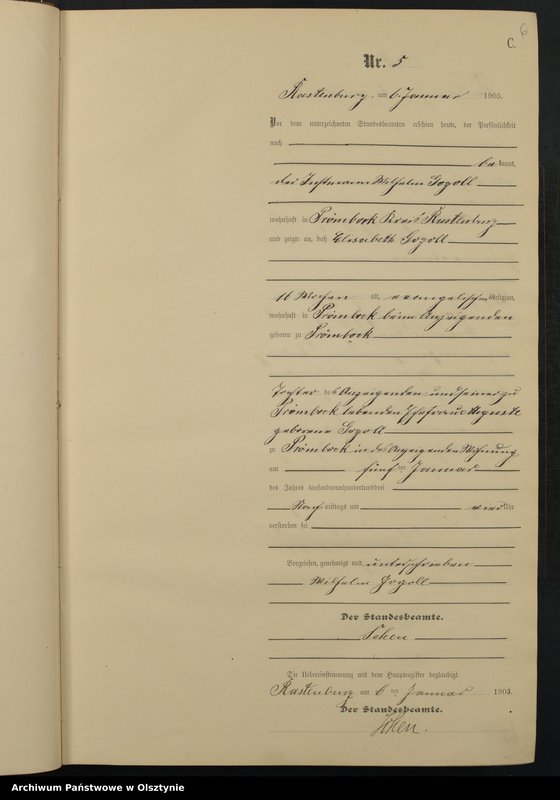 6
C.
Nr. 5
Rastenburg, am 6. Januar 1903.
Vor dem unterzeichneten Standesbeamten erschien heute, der Persönlichkeit
nach
bekannt,
der Instmann Wilhelm Gogoll
wohnhaft in Prömbock Kreis Rastenburg
und zeigte an, daß Elisabeth Gogoll
16 Wochen alt, evangelischer Religion,
wohnhaft in Prömbock beim Anzeigenden
geboren zu Prömbock
Tochter des Anzeigenden und seiner zu
Prömbock lebenden Ehefrau Auguste
geborene Gogoll
zu Prömbock in des Anzeigenden Wohnung
am fünften Januar
des Jahres tausendneunhundertunddrei
Nachmittags um vier Uhr
verstorben sei
Vorgelesen, genehmigt und unterschrieben
Wilhelm Gogoll
Der Standesbeamte.
Die Uebereinstimmung mit dem Hauptregister beglaubigt
Rastenburg am 6ten Januar 1903.
Der Standesbeamte.
Archiwum Państwowe w Olsztynie